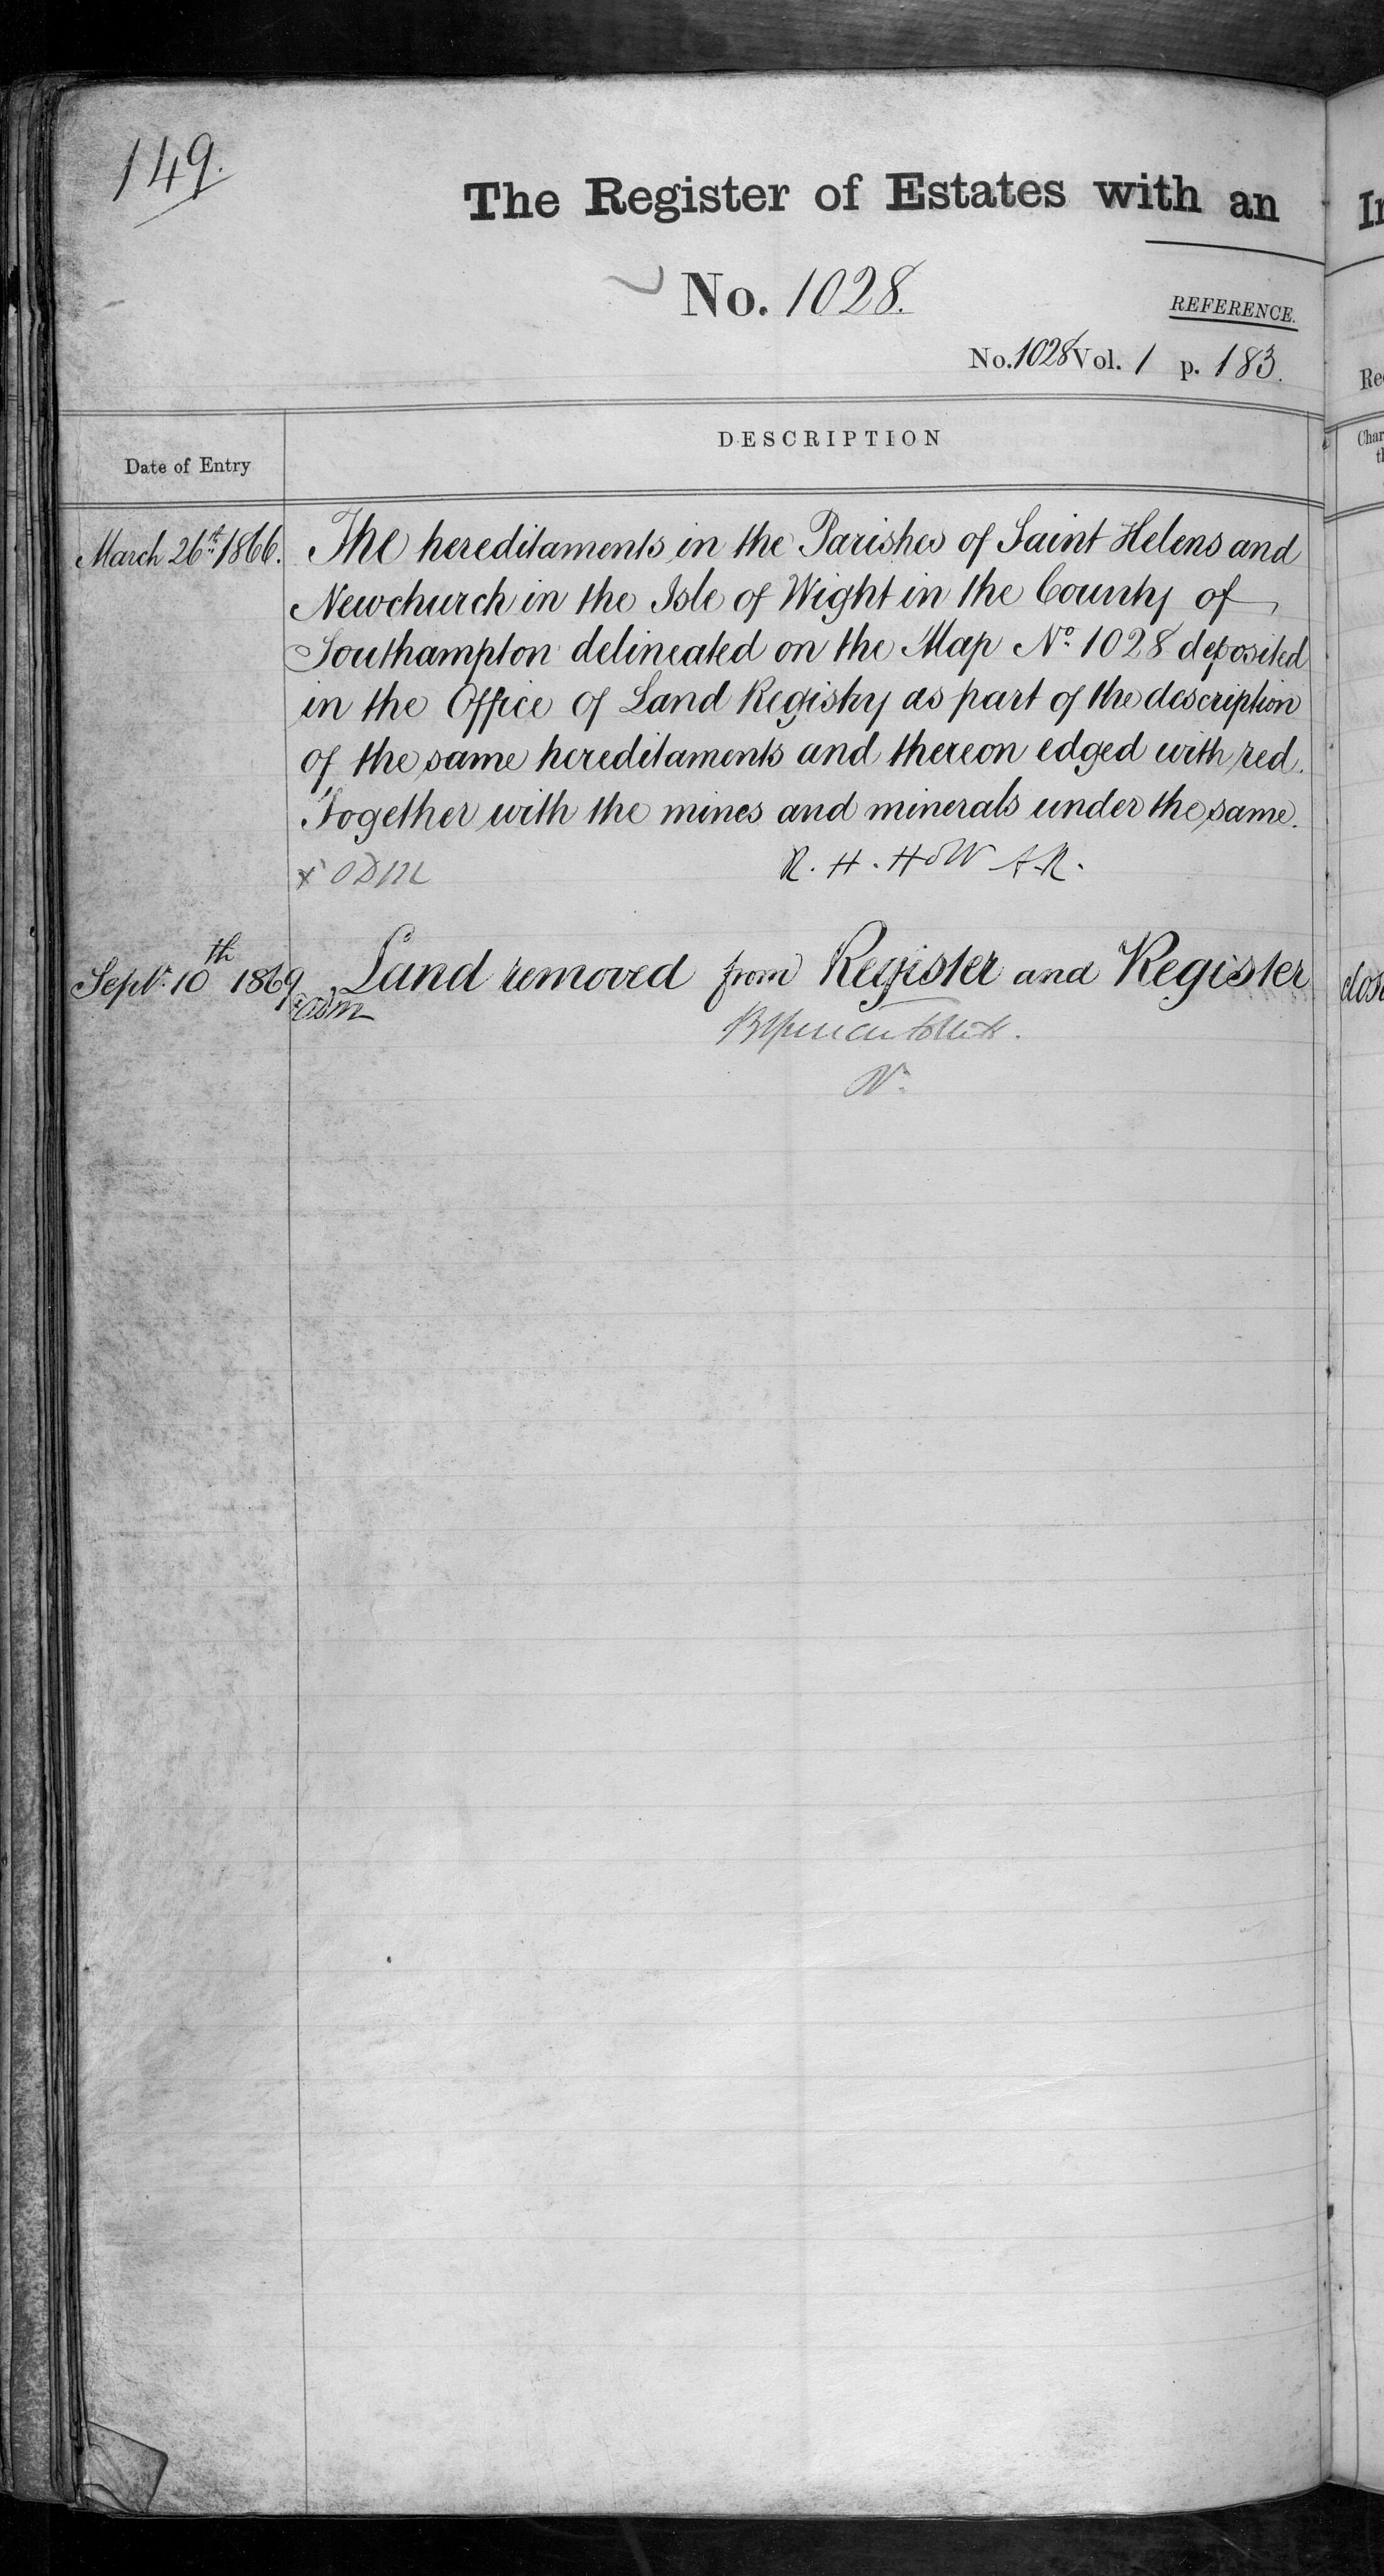 149.
The Register of Estates with an
In
No. 1028.
REFERENCE.
No. 1028 Vol. 1 p. 183.
DESCRIPTION
Date of Entry
March 26th 1866. The hereditaments in the Parishes of Saint Helens and
Newchurch in the Isle of Wight in the County of
Southampton delineated on the Map No. 1028 deposited
in the Office of Land Registry as part of the description
of the same hereditaments and thereon edged with red.
Together with the mines and minerals under the same.
x ODM R. H. H A.R.
Septr. 10th 1869 Land removed from Register and Register clos